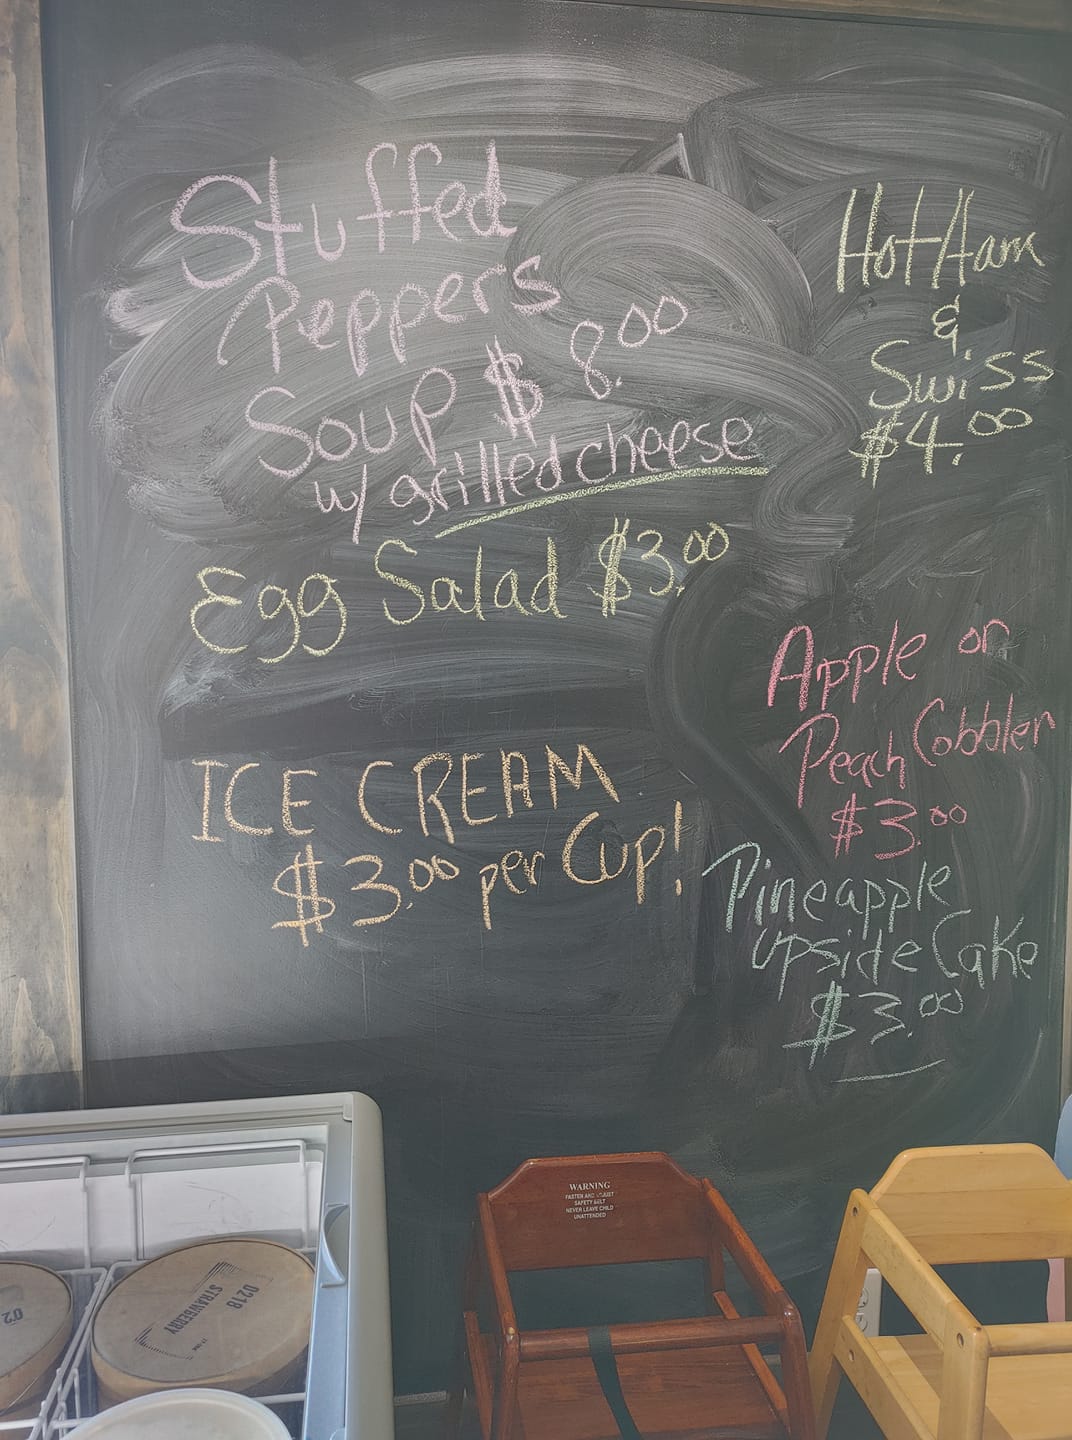 Stuffed
Peppers
Soup $8.00
w/ grilled cheese
Egg Salad $3.00
ICE CREAM
$3.00 per Cup!
Hot Ham
&
Swiss
$4.00
Apple or
Peach Cobbler
$3.00
Pineapple
Upside Cake
$3.00
WARNING
FASTEN AND ADJUST
SAFETY BELT
NEVER LEAVE CHILD
UNATTENDED
0218
STRAWBERRY
02